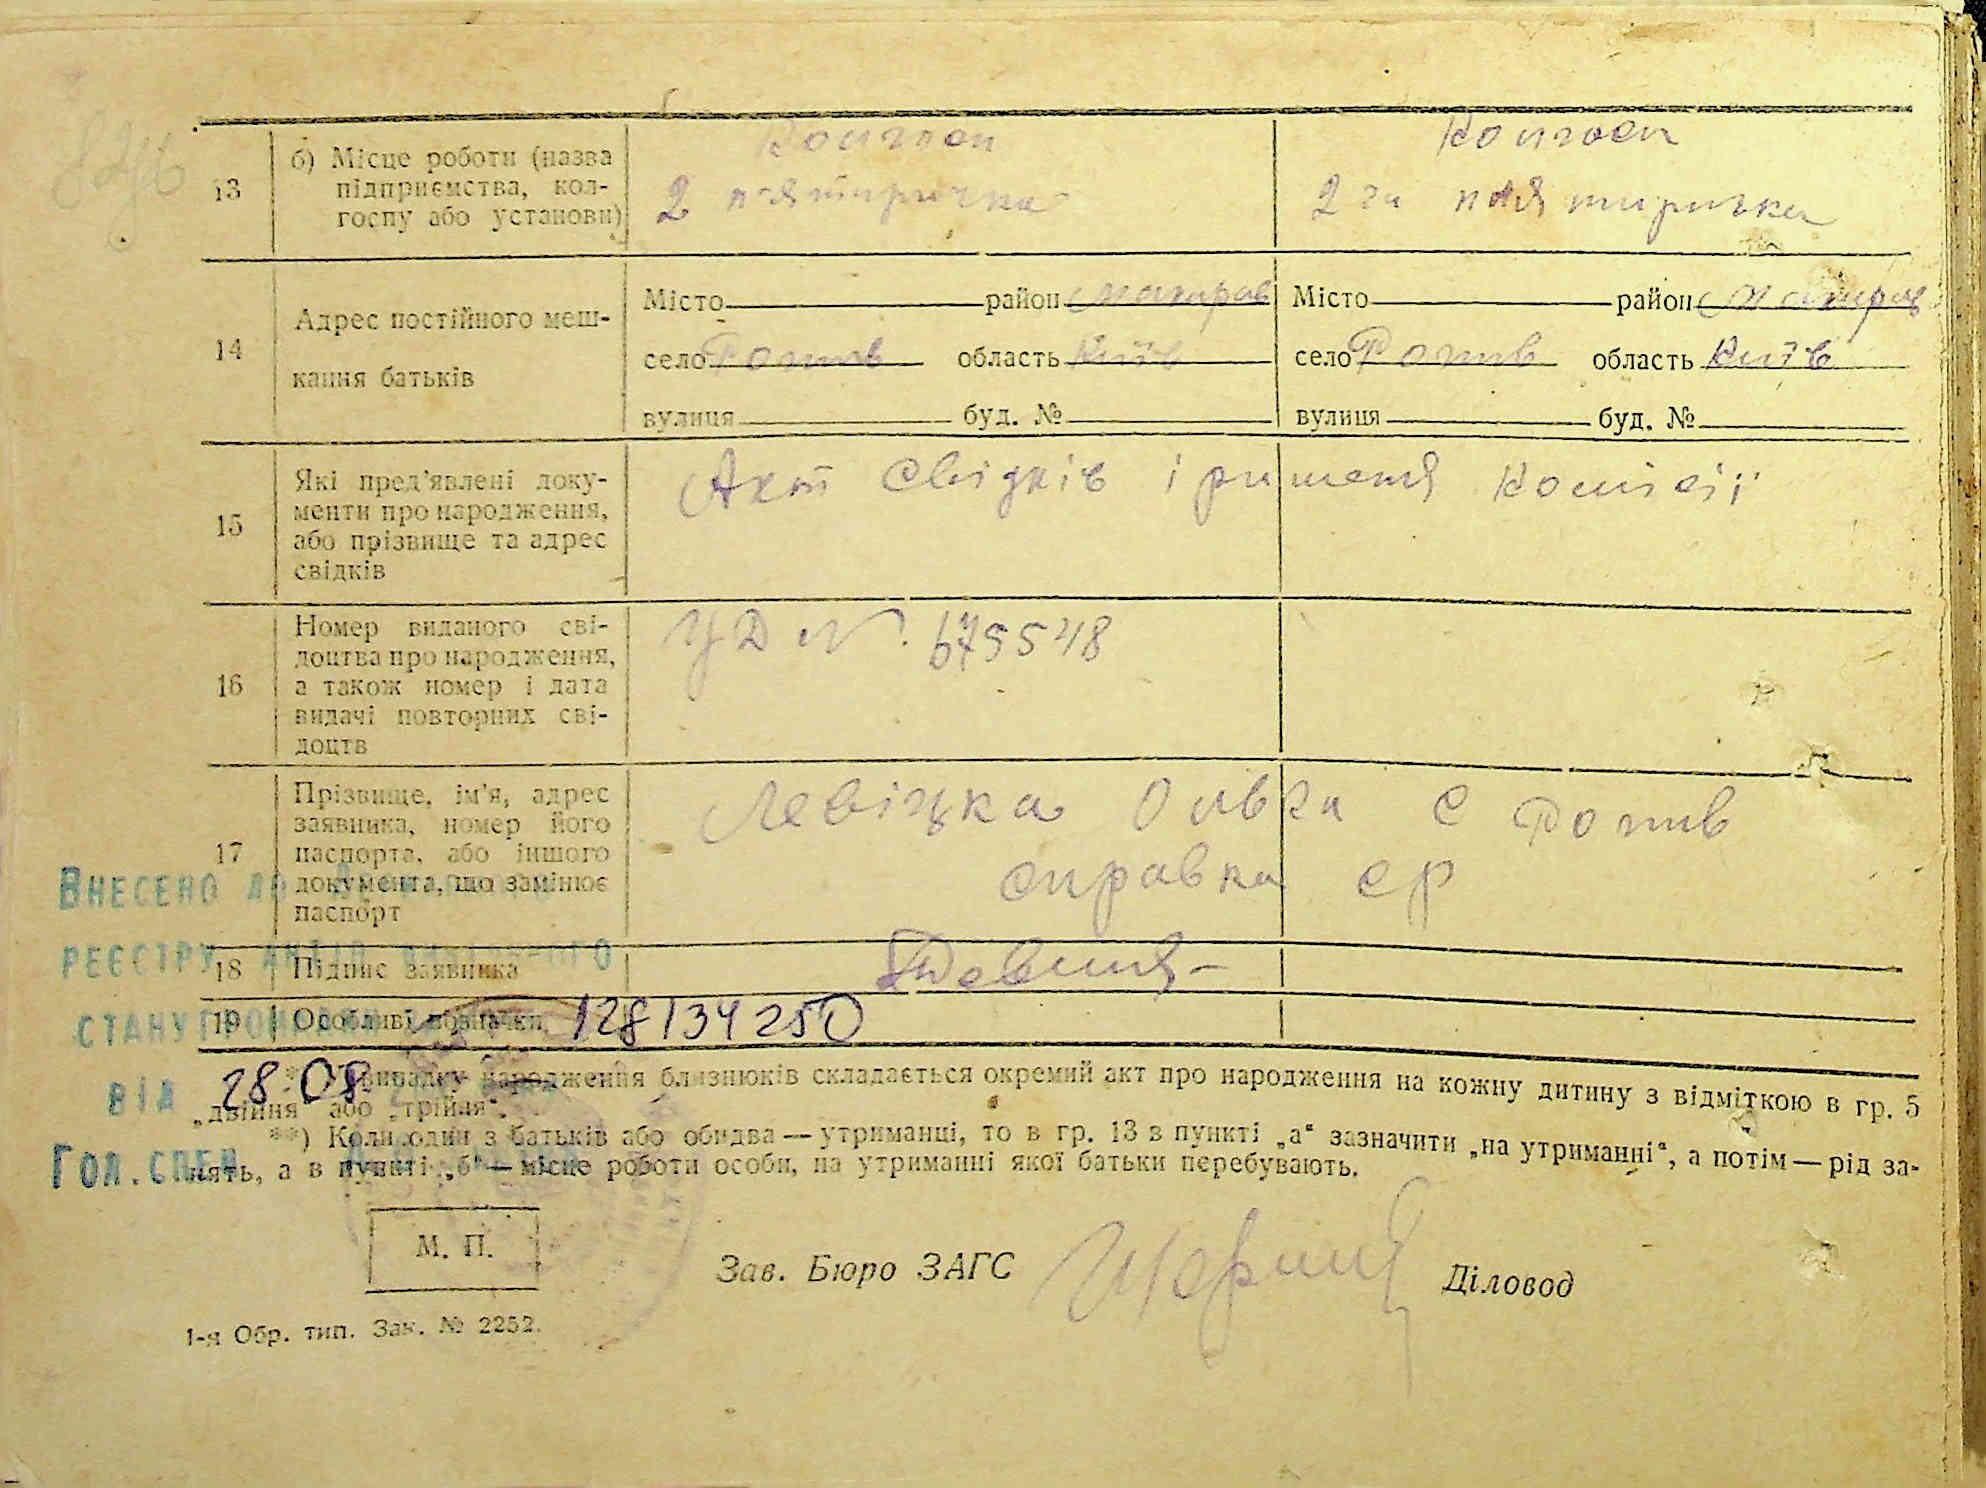 13
б) Місце роботи (назва
підприємства, кол-
госпу або установи)
Колгосп
2 п'ятирічка
Колгосп
2 га п'ятирічка
14
Адрес постійного меш-
кання батьків
Місто район Макарів
село Ротів область Київ
вулиця буд. №
Місто район Макарів
село Ротів область Київ
вулиця буд. №
15
Які пред'явлені доку-
менти про народження,
або прізвище та адрес
свідків
Акт свідків і рішення комісії
16
Номер виданого сві-
доцтва про народження,
а також номер і дата
видачі повторних сві-
доцтв
УД №. 675548
17
Прізвище, ім'я, адрес
заявника, номер його
паспорта, або іншого
документа, що замінює
паспорт
Левіцка Ольга с Ротів
справка ср
18
Підпис заявника
19
Особливі позначки
128134250
Внесено до Державного
реєстру актів цивільного
стану громадян
від 28.08
Гол. спец.
*) У випадку народження близнюків складається окремий акт про народження на кожну дитину з відміткою в гр. 5
„двійня“ або „трійня“.
**) Коли один з батьків або обидва — утриманці, то в гр. 13 в пункті „а“ зазначити „на утриманні“, а потім — рід за-
нять, а в пункті „б“ — місце роботи особи, на утриманні якої батьки перебувають.
М. П.
Зав. Бюро ЗАГС
Діловод
1-я Обр. тип. Зак. № 2252.